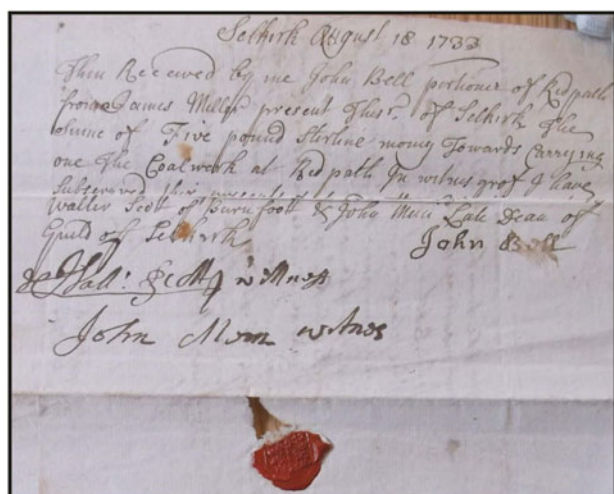 Selkirk August 18 1733
Then Received by me John Bell portioner of Ridpath
from James Miller present Thesr. of Selkirk The
Sume of Five pound Sterline money Towards Carrying
one The Coalwork at Ridpath In witnes qrof I have
Subscrived thir presents
Walter Scott of Burnfoott & John Late Dean of
Guild of Selkirk
John Bell
Wall: Scott witness
John witnes